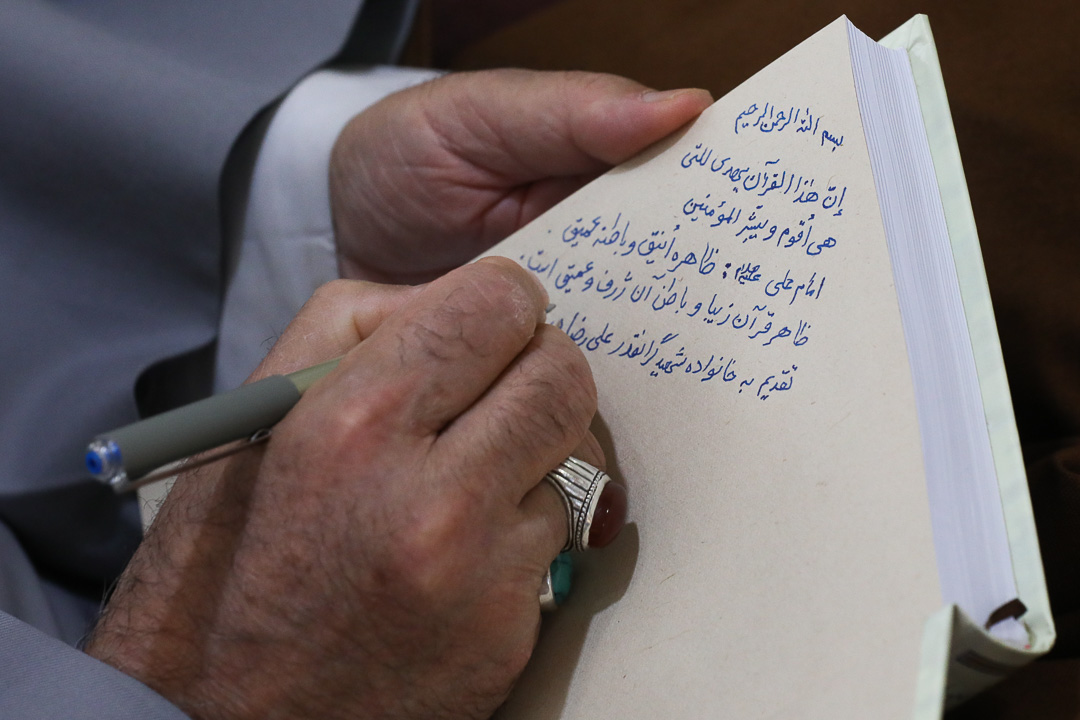 بسم الله الرحمن الرحیم
إنّ هٰذا القرآن یهدی للتی
هی أقوم و یبشّر المؤمنین
امام علی علیه‌السلام: ظاهره أنیق و باطنه عمیق.
ظاهر قرآن زیبا و باطن آن ژرف و عمیق است.
تقدیم به خانواده شهید گرانقدر علی رضا